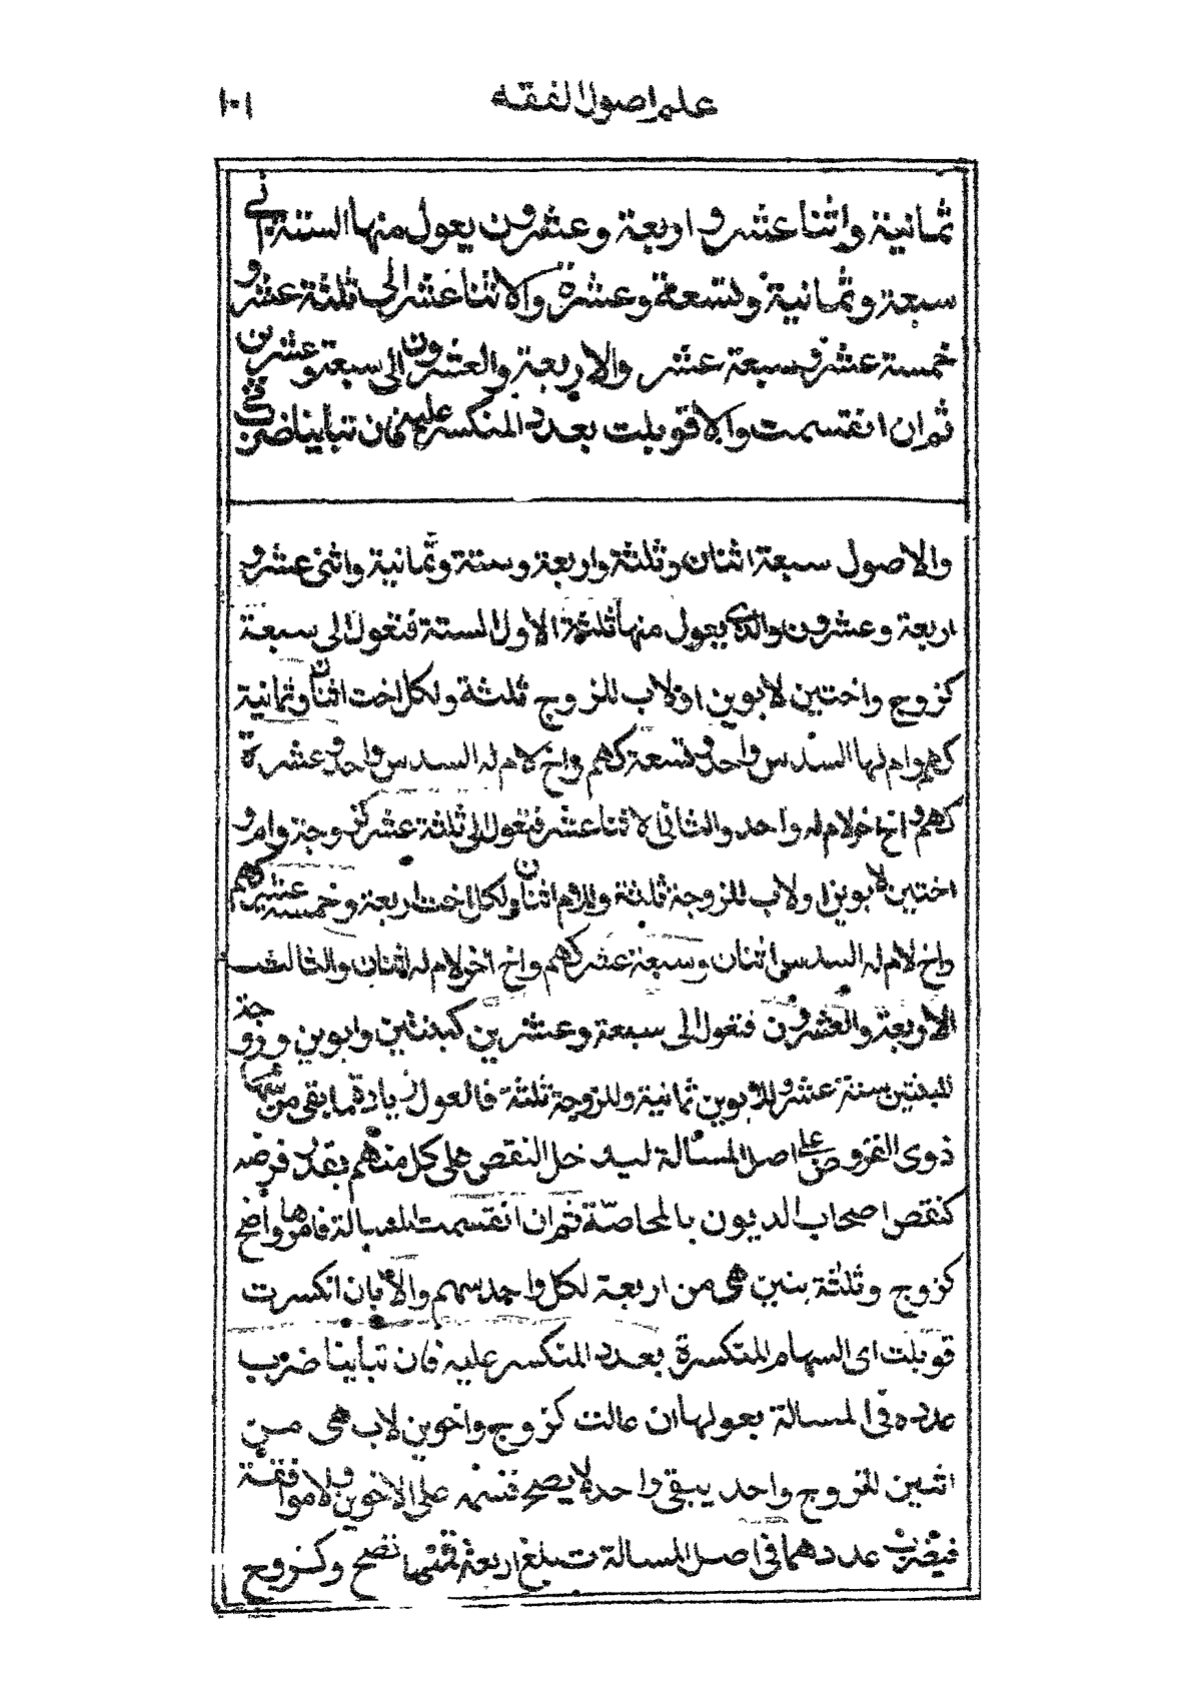 علم اصول الفقه
١٠١
ثمانية واثنا عشر و اربعة وعشرون يعول منها الستة الى
سبعة وثمانية وتسعة وعشرة والاثنا عشر الى ثلثة عشر و
خمسة عشر و سبعة عشر والاربعة والعشرون الى سبعة وعشرين
ثم ان انقسمت والا قوبلت بعدد المنكسر عليه فان تباينا ضرب فى
والاصول سبعة اثنان وثلثة واربعة وستة وثمانية واثنى عشر و
اربعة وعشرون والذى يعول منها ثلثة الاول الستة فتعول الى سبعة
كزوج واختين لابوين اولاب للزوج ثلثة ولكل اخت اثنان وثمانية
كهم وام لها السدس واحد و تسعة كهم واخ لام له السدس واحد و عشرة
كهم و اخ اخر لام له واحد والثانى الاثنا عشر فتعول الى ثلثة عشر كزوجة وام و
اختين لابوين اولاب للزوجة ثلثة وللام اثنان ولكل اخت اربعة وخمسة عشر كهم
واخ لام له السدس اثنان وسبعة عشر كهم واخ اخر لام له اثنان والثالث
الاربعة والعشرون فتعول الى سبعة وعشرين كبنتين وابوين وزوجة
للبنتين ستة عشر وللابوين ثمانية وللزوجة ثلثة فالعول زيادة ما بقى من سهام
ذوى الفروض على اصل المسالة ليدخل النقص على كل منهم بقدر فرضه
كنقص اصحاب الديون بالمحاصة ثم ان انقسمت المسالة فامرها واضح
كزوج وثلثة بنين هى من اربعة لكل واحد سهم والا بان انكسرت
قوبلت اى السهام المنكسرة بعدد المنكسر عليه فان تباينا ضرب
عدده فى المسالة بعولها ان عالت كزوج واخوين لاب هى من
اثنين للزوج واحد يبقى واحد لا يصح قسمه على الاخوين ولا موافقة
فيضرب عددهما فى اصل المسالة تبلغ اربعة فمنها تصح وكزوج